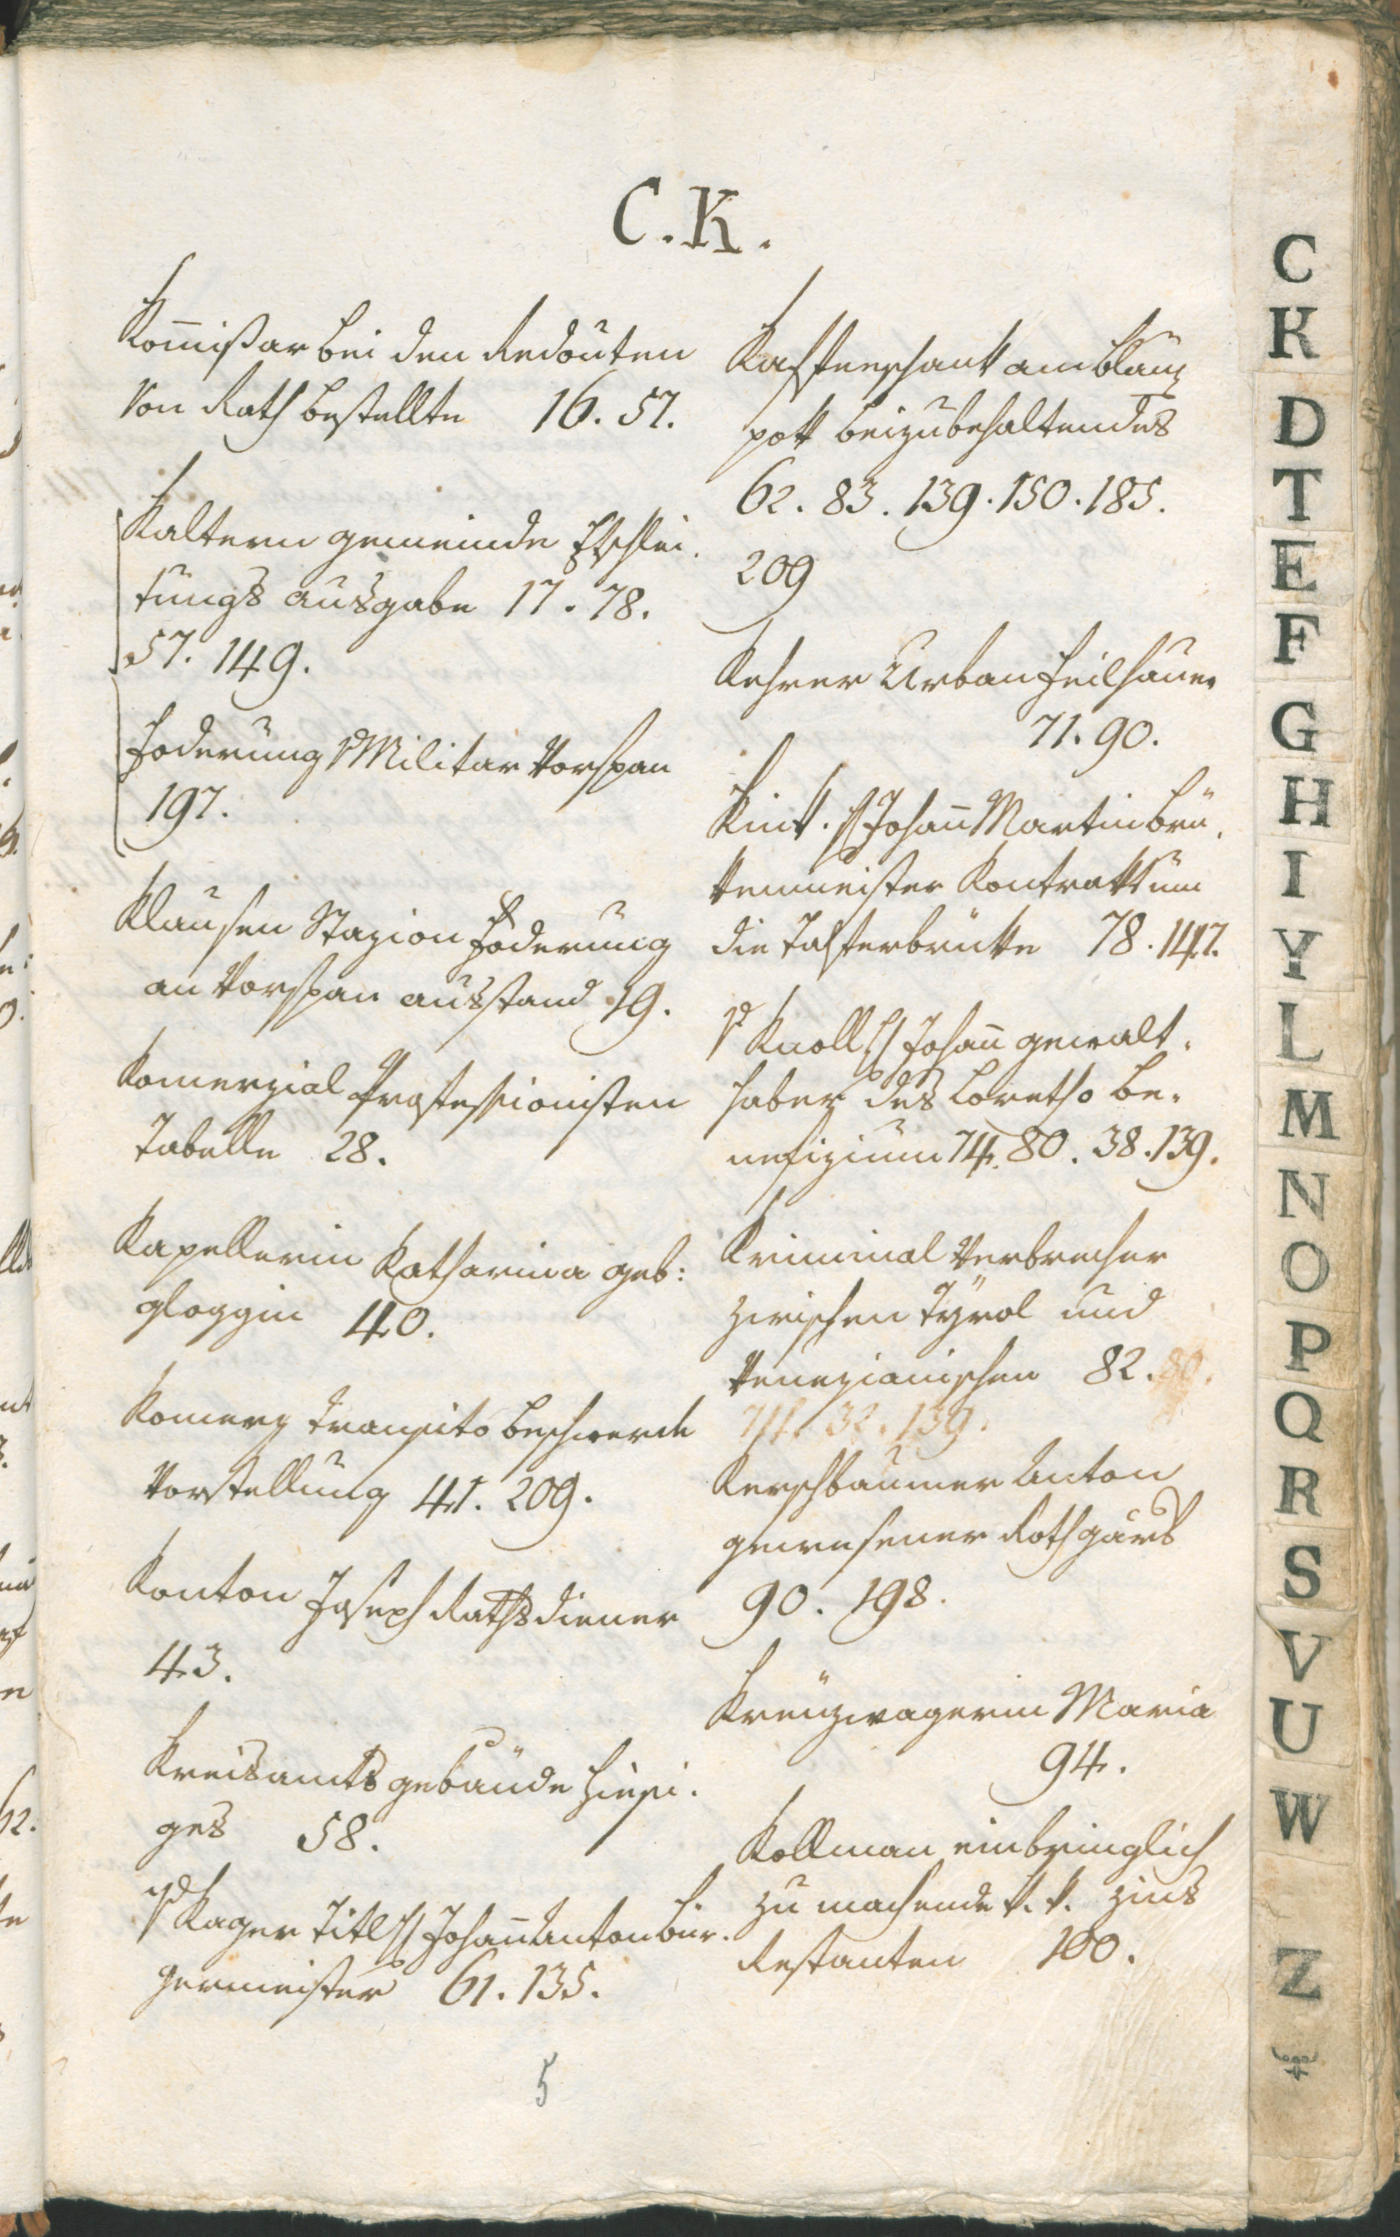 C. K.
Kom̄ißar bei den Redouten
von Rath bestellte 16. 57.
Kaltern gemeinde Etschlei-
tungs ausgabe 17. 78.
57. 149.
Foderung Militar Vorspan
197.
Klausen Stazion Foderung
an Vorspan ausstand 19.
Komerzial Professionisten
Tabelle 28.
Kapellerin Katharina geb:
gloggin 40.
Komerz Transito beschwerde
Vorstellung 41. 209.
Konton Joseph Rathsdiener
43.
Kreisamts gebäude hiesi-
ges 58.
Kager Titl Johan̄ Anton bur-
germeister 61. 135.
Kasternschank am
beizubehaltendes
62. 83. 139. 150. 185.
209
Kehrer Urban Feilhauer
71. 90.
Kink Johan̄ Martin brü-
kenmeister Kontrakt um
die Talferbrükke 78. 147.
Knoll Johan̄ gewalt-
haber des Loretho be-
nefizium 74. 80. 38. 139.
Kriminal Verbrecher
zwischen Tÿrol und
Venezianischen 82. 80.
74. 32. 139.
Kerschbaumer Anton
gewesener Rothgärb
90. 198.
Kreuzwagerin Maria
94.
Kollman einbringlich
zu machende k. k. Zins
Restanten 100.
5
C
K
D
T
E
F
G
H
I
Y
L
M
N
O
P
Q
R
S
V
U
W
Z